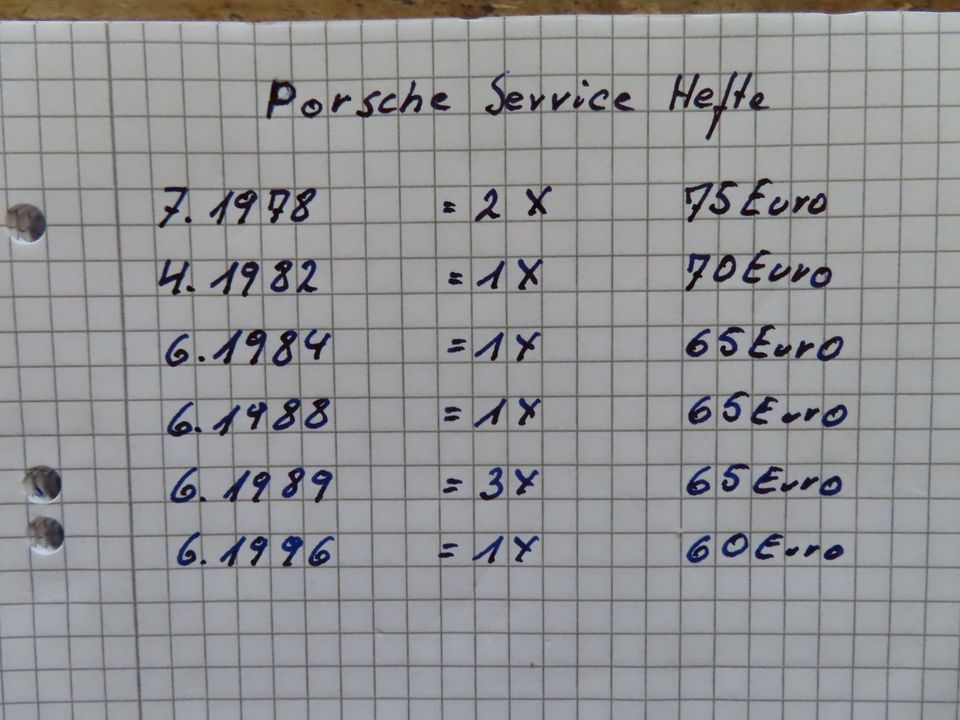 Porsche Service Hefte
7.1978 = 2 X 75 Euro
4.1982 = 1 X 70 Euro
6.1984 = 1 X 65 Euro
6.1988 = 1 X 65 Euro
6.1989 = 3 X 65 Euro
6.1996 = 1 X 60 Euro